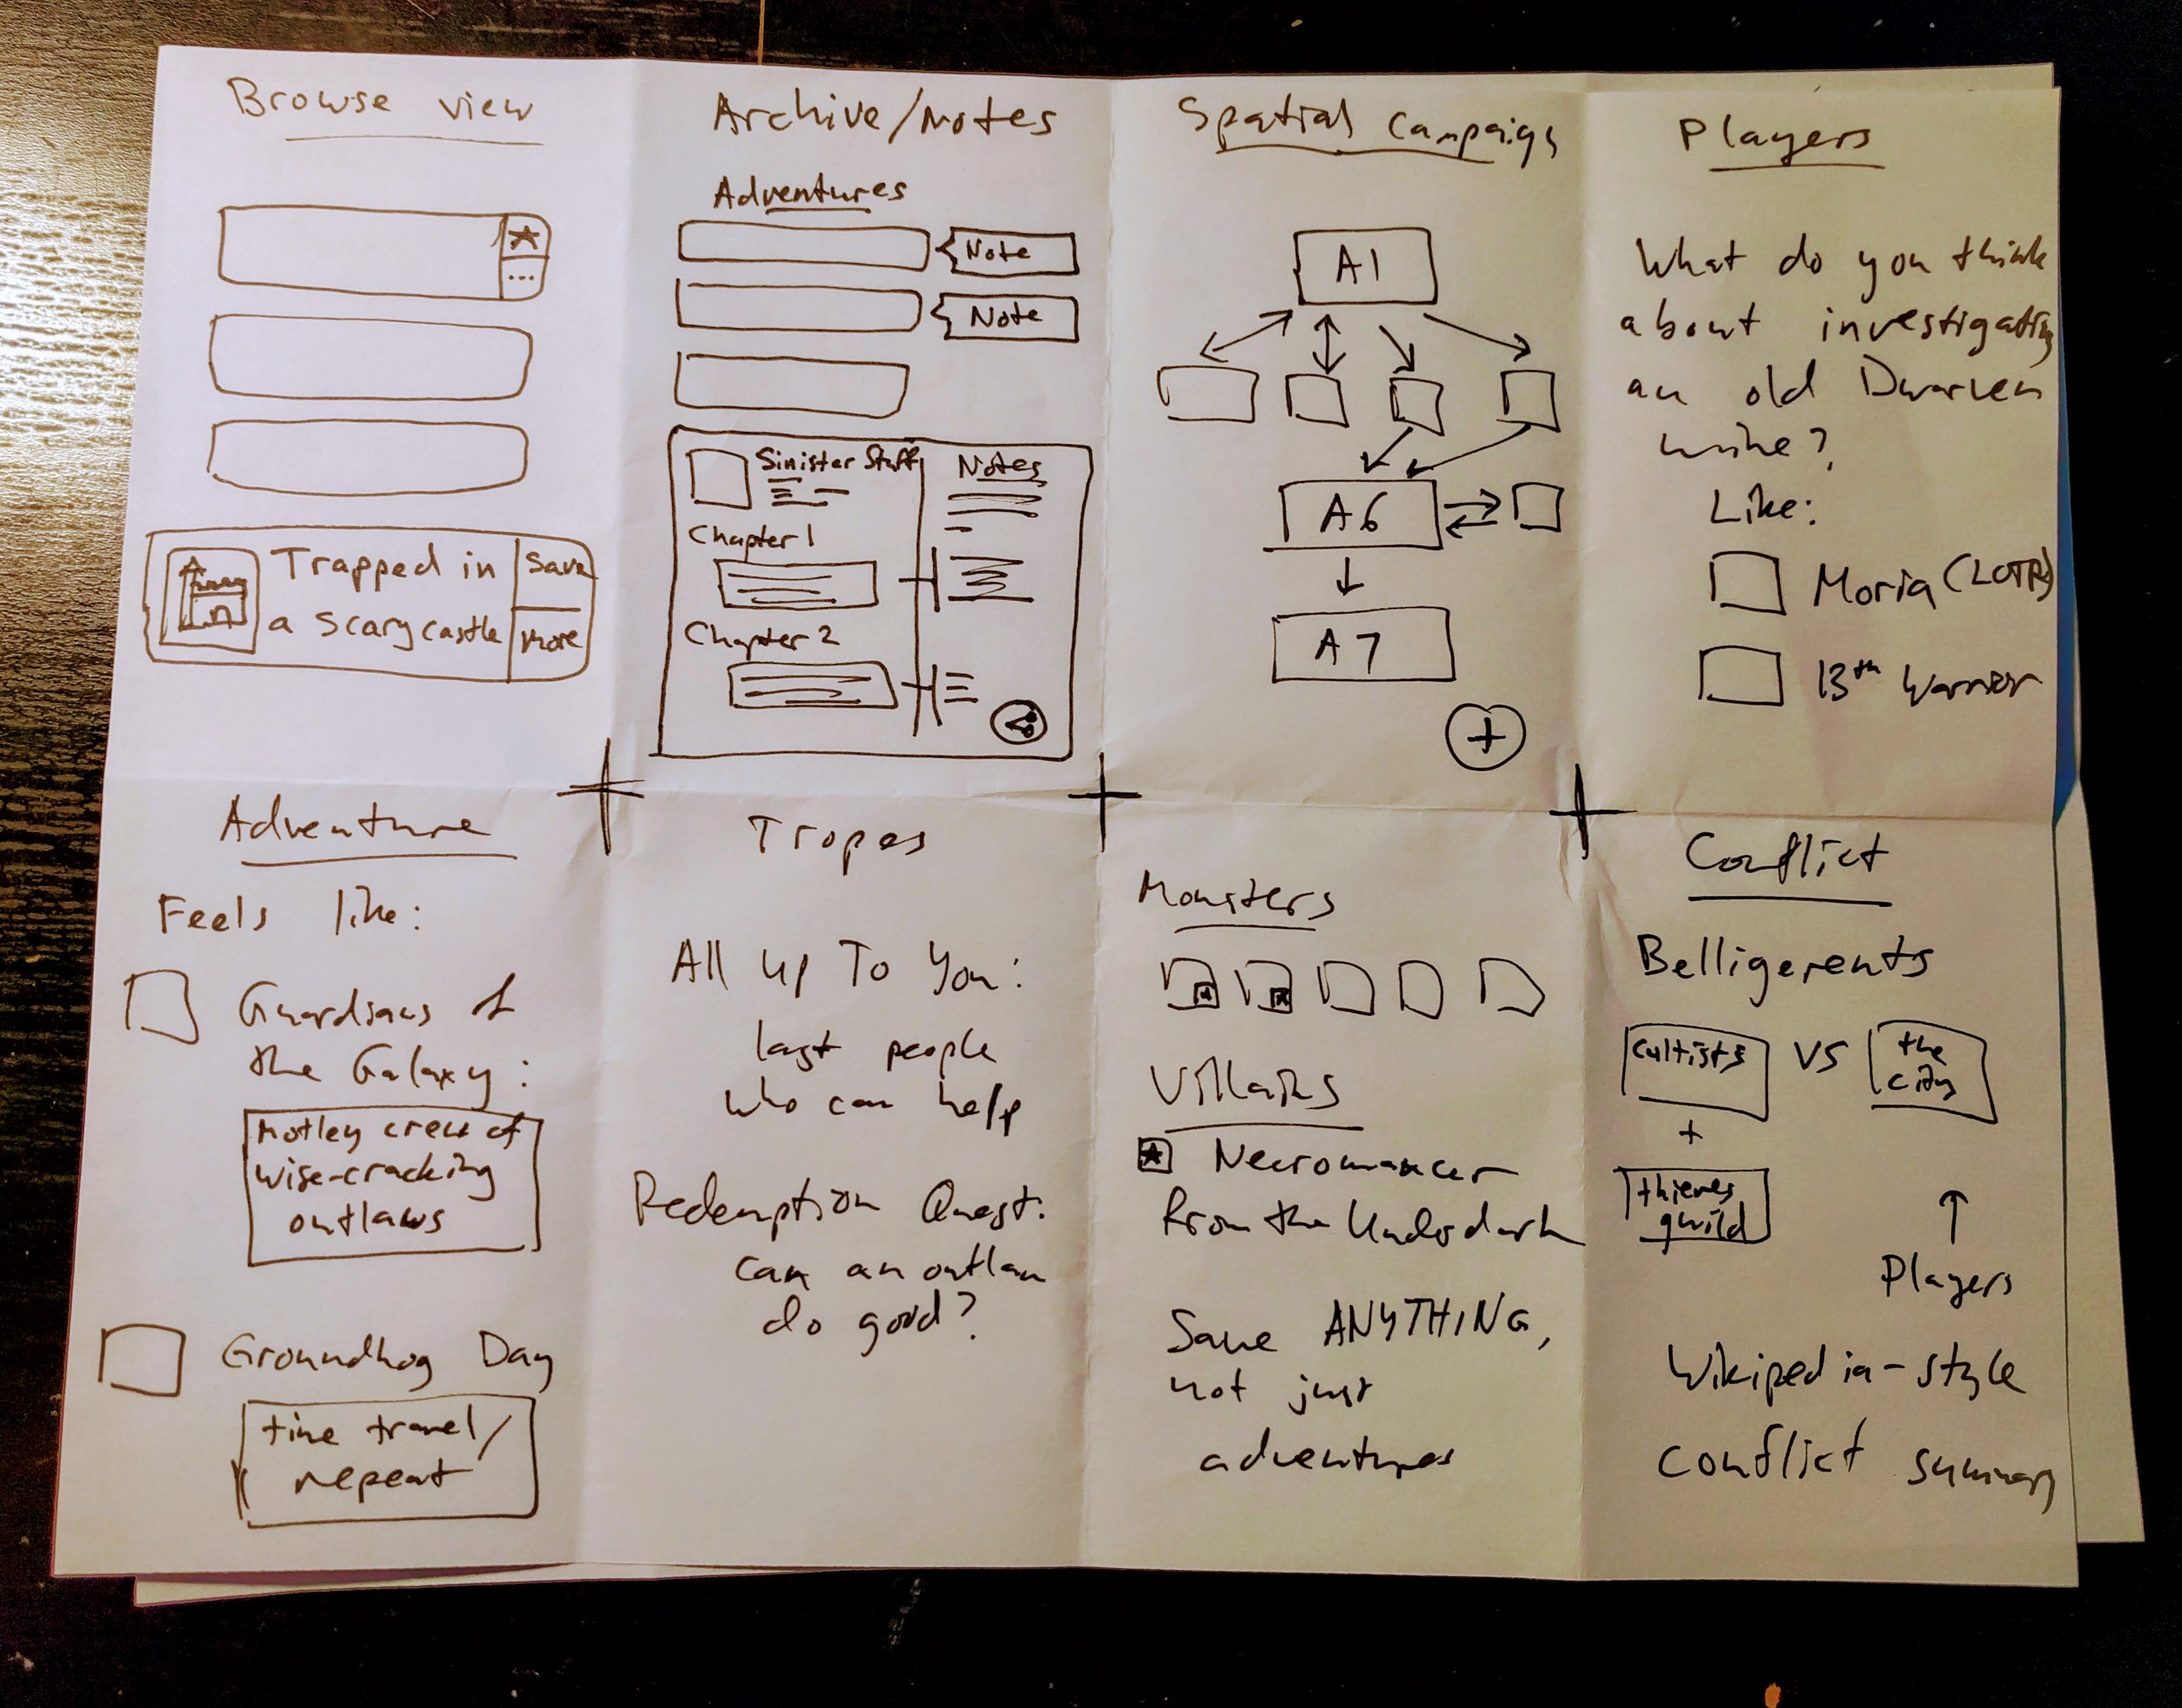 Browse view
...
Trapped in
a scary castle
Save
More
Archive/Notes
Adventures
Note
Note
Sinister Stuff
Notes
Chapter 1
Chapter 2
Spatial Campaign
A1
A6
A7
+
Players
What do you think
about investigating
an old Dwarven
mine?
Like:
Moria (LOTR)
13th Warrior
Adventure
Feels like:
Guardians of
the Galaxy:
Motley crew of
wise-cracking
outlaws
Groundhog Day
time travel/
repeat
Tropes
All Up To You:
last people
who can help
Redemption Quest:
can an outlaw
do good?
Monsters
Villains
Necromancer
from the Underdark
Save ANYTHING,
not just
adventures
Conflict
Belligerents
Cultists
vs
the
city
+
thieves
guild
Players
Wikipedia-style
conflict summary